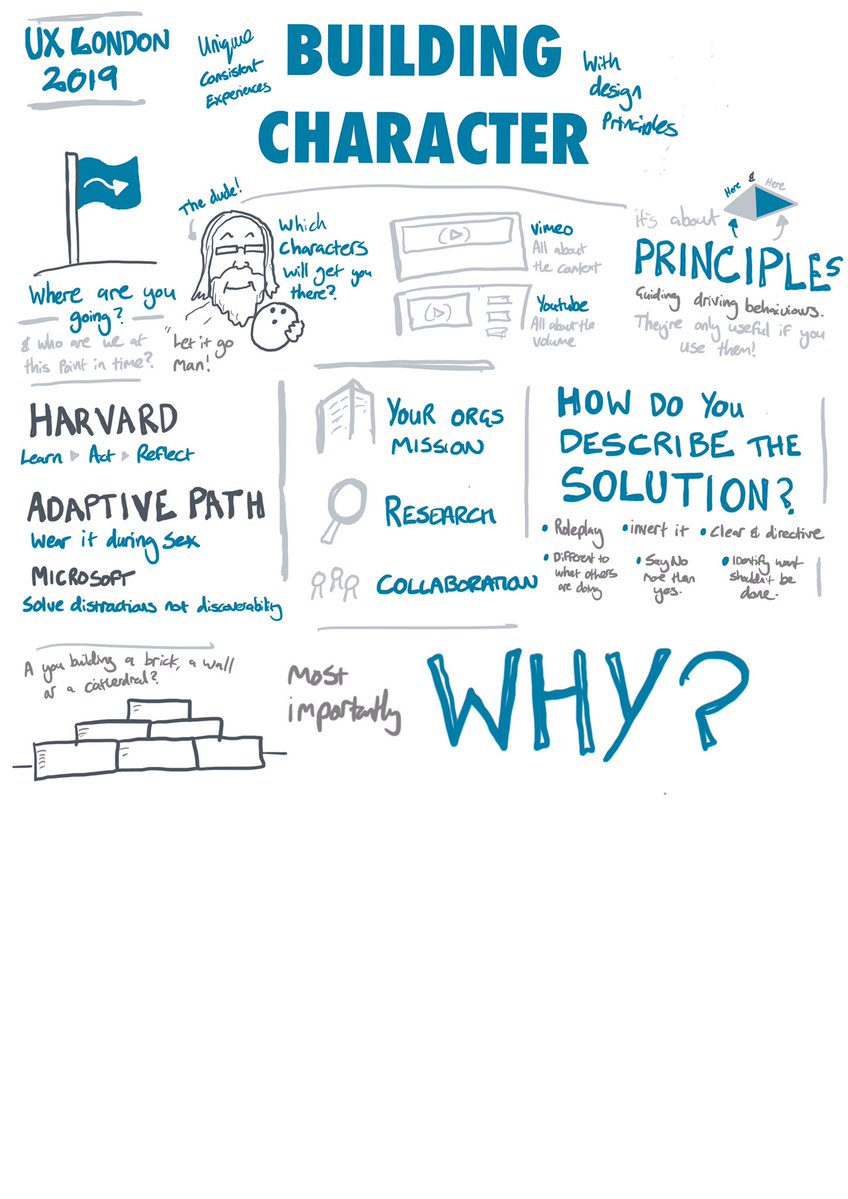 UX LONDON
2019
Unique
Consistent
Experiences
BUILDING
CHARACTER
With
design
Principles
Where are you
going?
& who are we at
this point in time?
The dude!
Which
Characters
will get you
there?
"Let it go
Man!
Vimeo
All about
the content
Youtube
All about the
volume
Here & Here
it's about
PRINCIPLES
Guiding driving behaviours.
They're only useful if you
use them!
HARVARD
Learn ▷ Act ▷ Reflect
ADAPTIVE PATH
Wear it during sex
MICROSOFT
Solve distractions not discoverability
YOUR ORGS
MISSION
RESEARCH
COLLABORATION
HOW DO YOU
DESCRIBE THE
SOLUTION?
• Roleplay • invert it • Clear & directive
• Different to
what others
are doing
• Say No
more than
yes.
• Identify what
shouldn't be
done.
A you building a brick, a wall
or a cathedral?
Most
importantly
WHY?